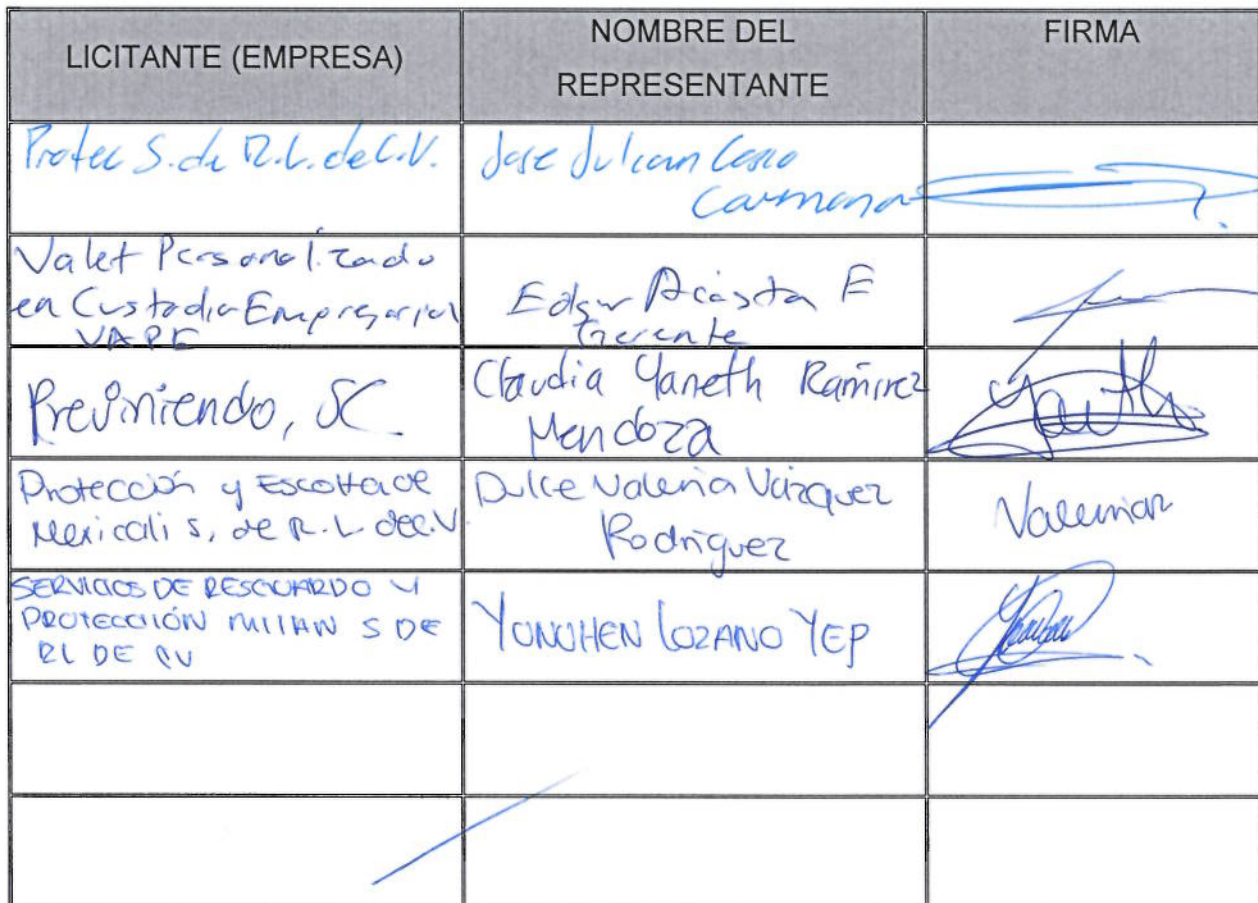 LICITANTE (EMPRESA)
NOMBRE DEL
REPRESENTANTE
FIRMA
Protec S. de R.L. de C.V.
Jose Julian
Carmona
Valet Personalizado
en Custodia Empresarial
VAPE
Edgar Acosta E
Gerente
Previniendo, SC
Claudia Yaneth Ramirez
Mendoza
Protección y Escolta de
Mexicali S. de R.L. de C.V.
Dulce Valeria Vázquez
Rodriguez
SERVICIOS DE RESGUARDO Y
PROTECCIÓN MILIAN S DE
RL DE CV
LOZANO YEP